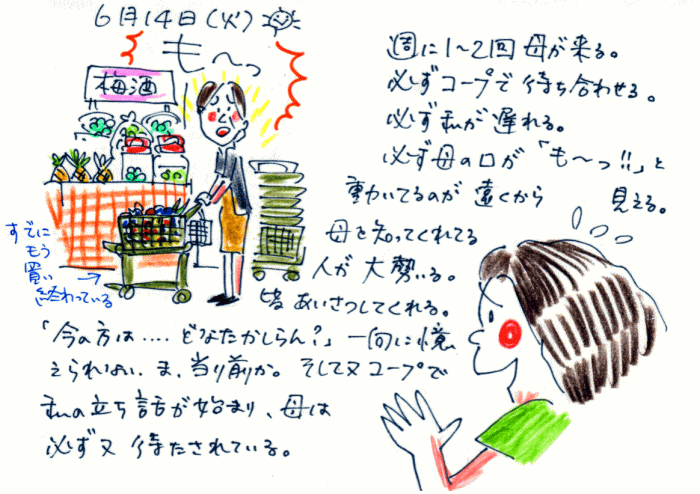 6月14日(火)
も〜っ
梅酒
すでに
もう
買い
終わっている
週に1〜2回 母が来る。
必ずコープで待ち合わせる。
必ず私が遅れる。
必ず母の口が「も〜っ!!」と
動いてるのが遠くから 見える。
母を知ってくれてる
人が大勢いる。
皆あいさつしてくれる。
「今の方は‥‥どなたかしらん?」一向に憶
えられない。ま、当り前か。そして又コープで
私の立ち話が始まり、母は
必ず又待たされている。